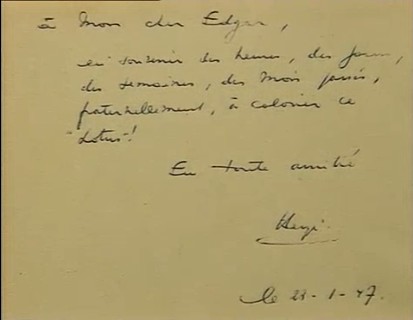 à Mon cher Edgar,
en souvenir des heures, des jours,
des semaines, des mois passés,
fraternellement, à colorier ce
"Lotus"!
En toute amitié
Hergé
le 29-1-47.